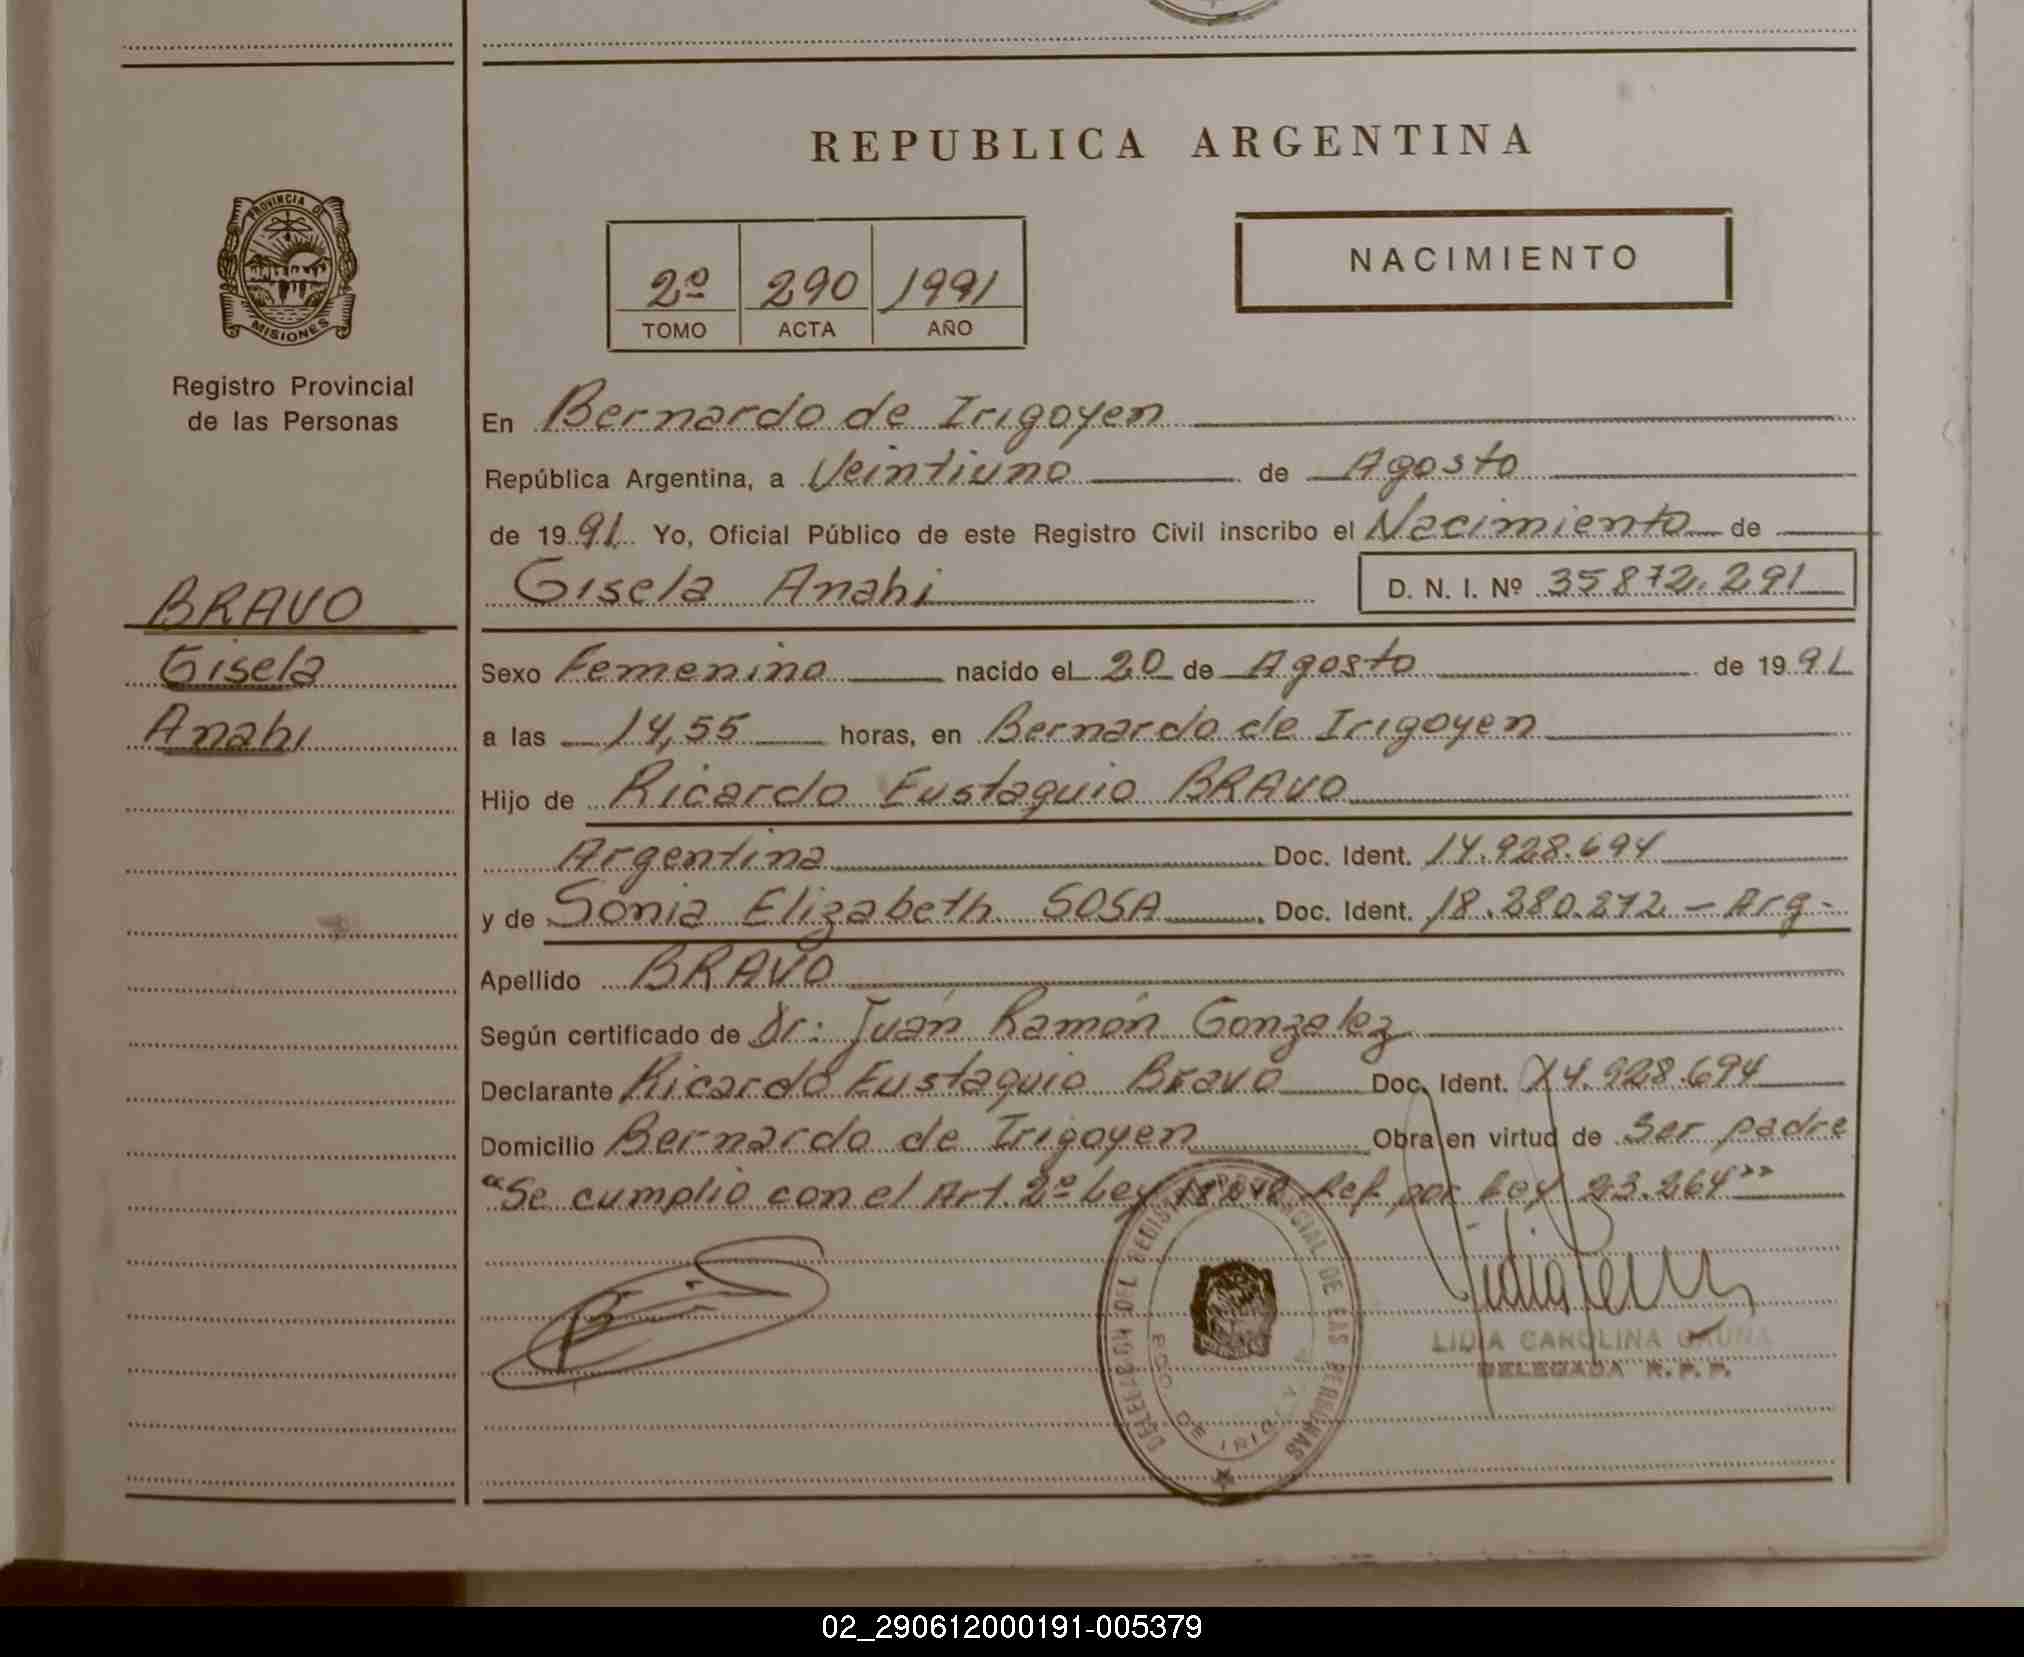 REPUBLICA ARGENTINA
PROVINCIA DE
MISIONES
Registro Provincial
de las Personas
2º 290 1991
TOMO ACTA AÑO
NACIMIENTO
En Bernardo de Irigoyen
República Argentina, a Veintiuno de Agosto
de 1991 Yo, Oficial Público de este Registro Civil inscribo el Nacimiento de
Gisela Anahi D. N. I. Nº 35872.291
BRAVO
Gisela
Anahi
Sexo Femenino nacido el 20 de Agosto de 1991
a las 14,55 horas, en Bernardo de Irigoyen
Hijo de Ricardo Eustaquio BRAVO
Argentina Doc. Ident. 14.928.694
y de Sonia Elizabeth SOSA Doc. Ident. 18.280.272 - Arg-
Apellido BRAVO
Según certificado de Dr: Juan Ramón Gonzalez
Declarante Ricardo Eustaquio Bravo Doc. Ident. 14.928.694
Domicilio Bernardo de Irigoyen Obra en virtud de Ser padre
"Se cumplio con el Art. 2º Ley Ref. por Ley 23.264"
DELEGACION DEL REGISTRO PROVINCIAL DE LAS PERSONAS
LIDIA CAROLINA GAUNA
DELEGADA R. P. P.
02_290612000191-005379